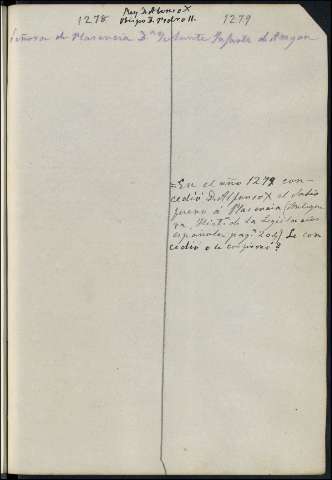 Rey D. Alfonso X
1278 Obispo D. Pedro II. 1279
Señora de Plasencia D.ª Violante Infanta de Aragon
= En el año 1279 con-
cedió D. Alfonso X el Sabio
fuero á Plasencia
Hist. de la Legislación
española, pag. 204) Se con
cedió o le confirmó?